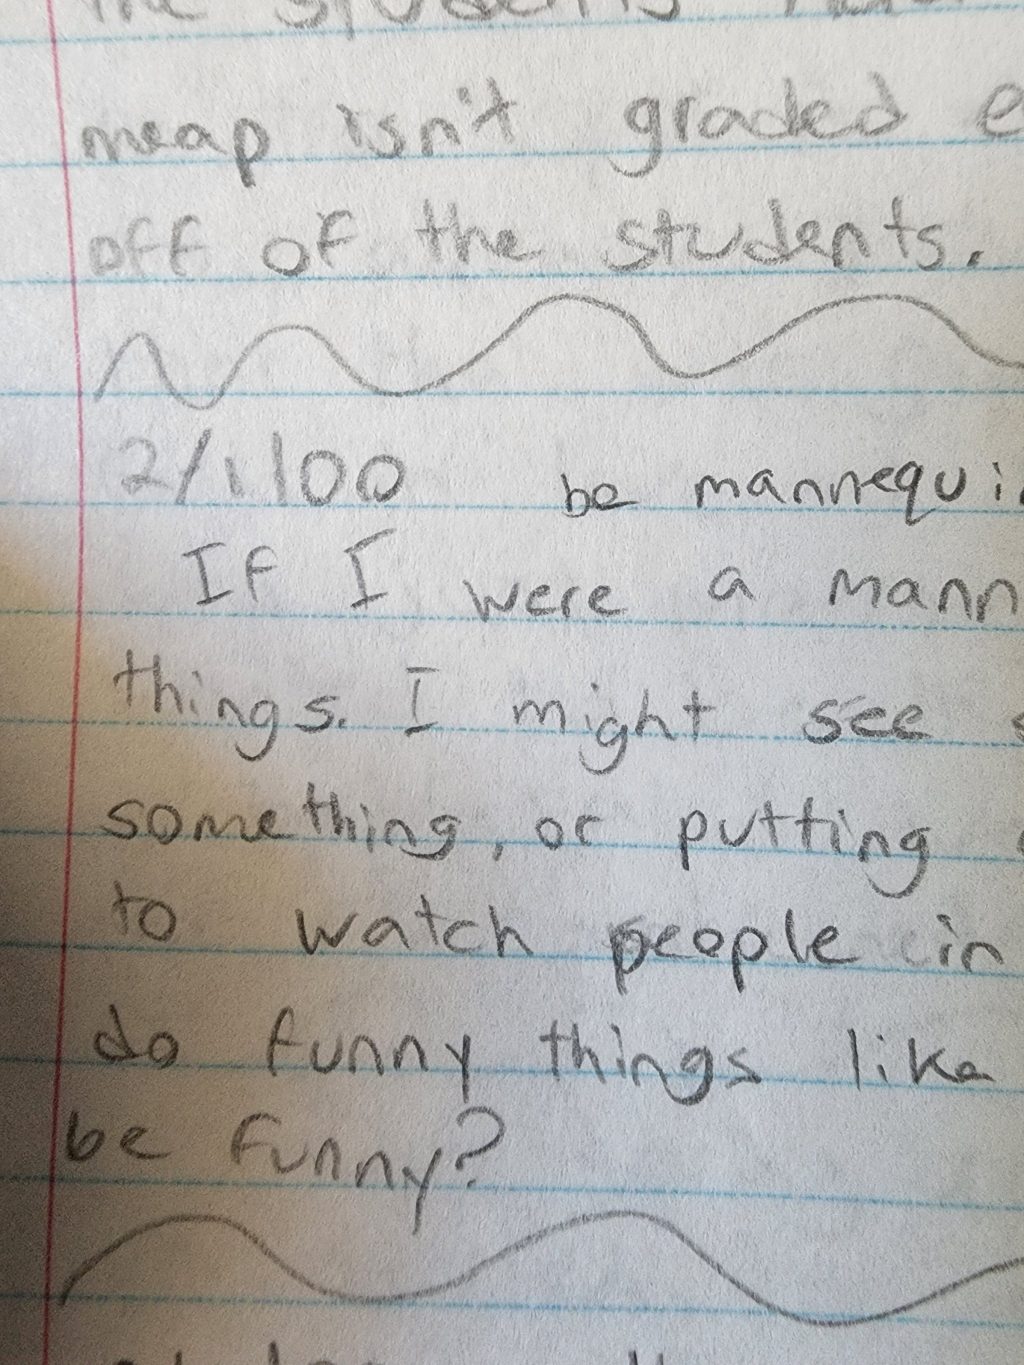 the students
meap isn't graded e
off of the students.
2/1/00 be mannequi
If I were a mann
things. I might see s
something, or putting
to watch people in
do funny things like
be funny?